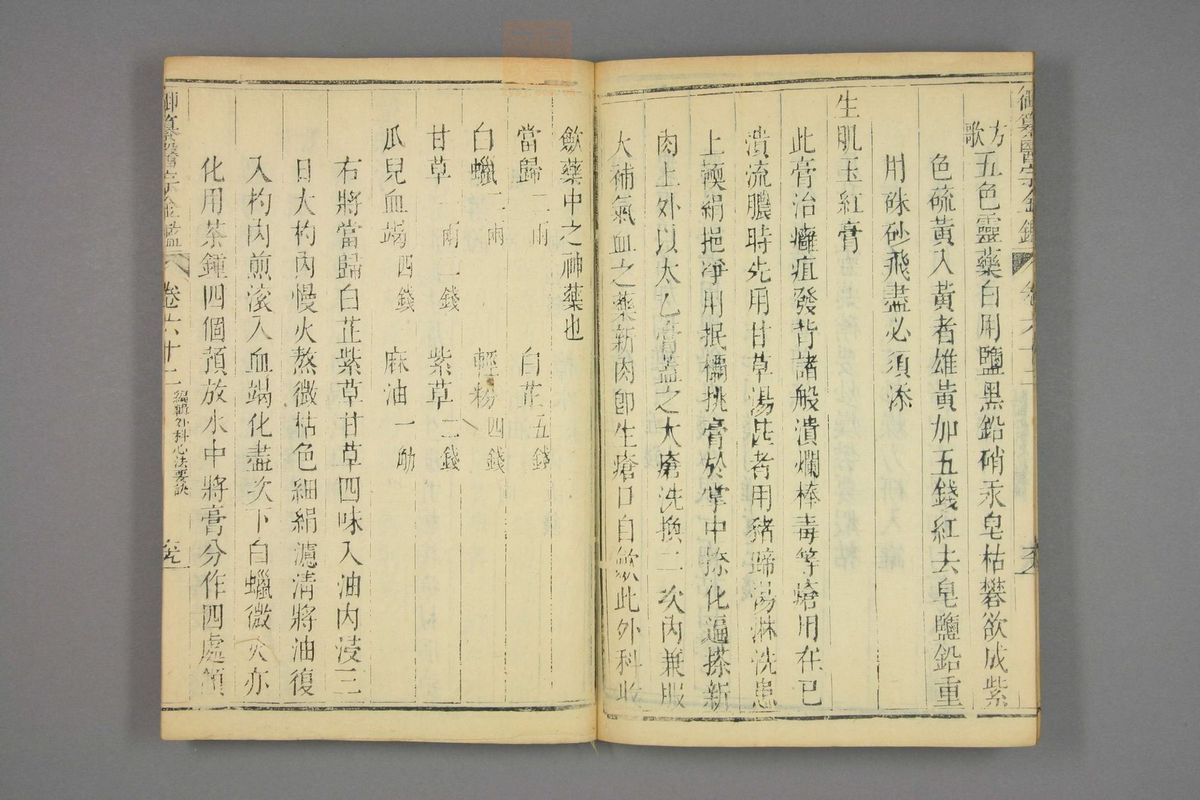 御纂醫宗金鑑 卷六十二
方歌 五色靈藥白用鹽黑鉛硝汞皂枯礬欲成紫
色硫黃入黃者雄黃加五錢紅去皂鹽鉛重
用硃砂飛盡必須添
生肌玉紅膏
此膏治癰疽發背諸般潰爛棒毒等瘡用在已
潰流膿時先用甘草湯甚者用豬蹄湯淋洗患
上輭絹挹淨用抿櫡挑膏於掌中捺化遍搽新
肉上外以太乙膏蓋之大瘡洗換二次內兼服
大補氣血之藥新肉即生瘡口自斂此外科收
斂藥中之神藥也
當歸二兩 白芷五錢
白蠟二兩 輕粉四錢
甘草一兩二錢 紫草二錢
瓜兒血竭四錢 麻油一觔
右將當歸白芷紫草甘草四味入油內浸三
日大杓內慢火熬微枯色細絹濾清將油復
入杓內煎滾入血竭化盡次下白蠟微火亦
化用茶鍾四個預放水中將膏分作四處傾
御纂醫宗金鑑 卷六十二 編輯外科心法要訣